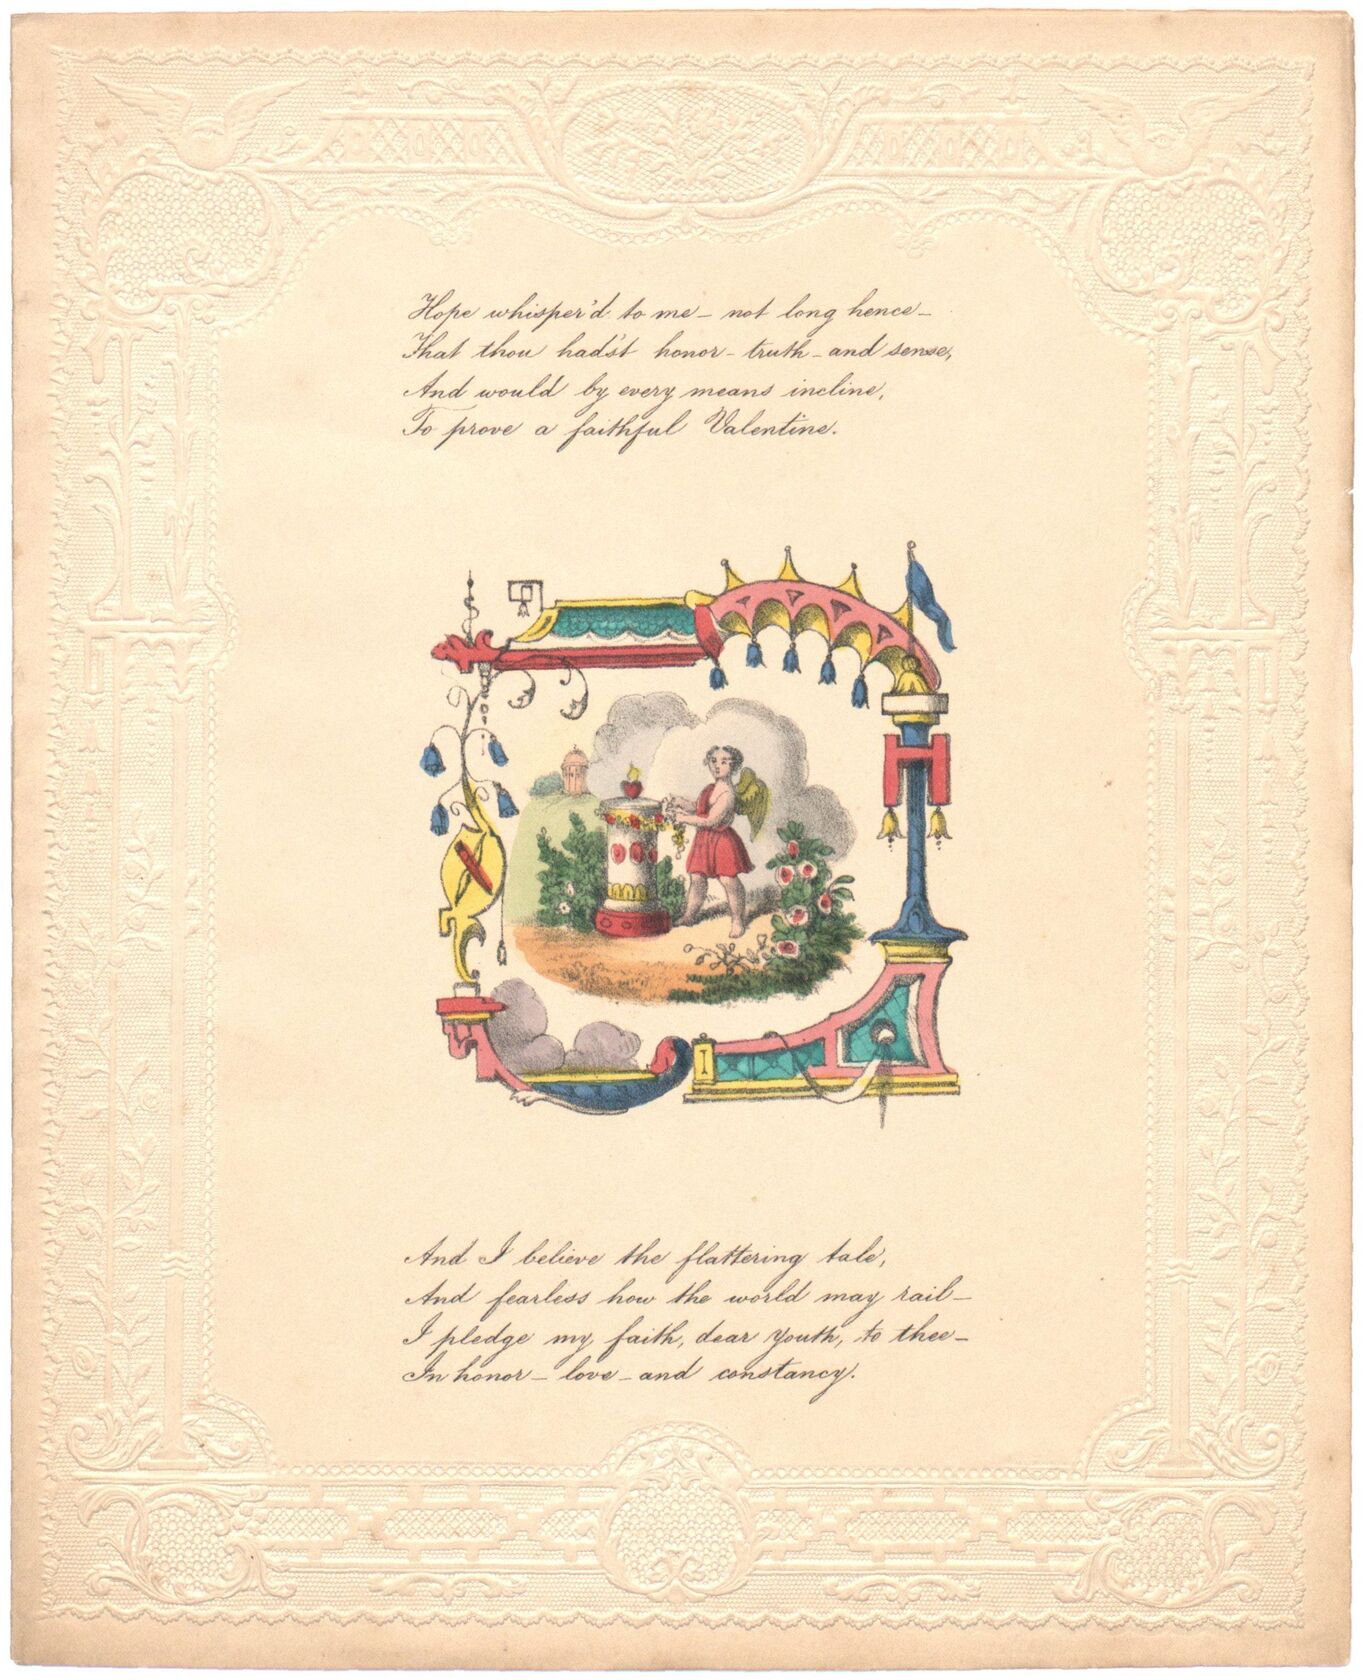 Hope whisper'd to me – not long hence –
That thou had'st honor – truth – and sense,
And would by every means incline,
To prove a faithful Valentine.
And I believe the flattering tale,
And fearless how the world may rail –
I pledge my faith, dear youth, to thee –
In honor – love – and constancy.